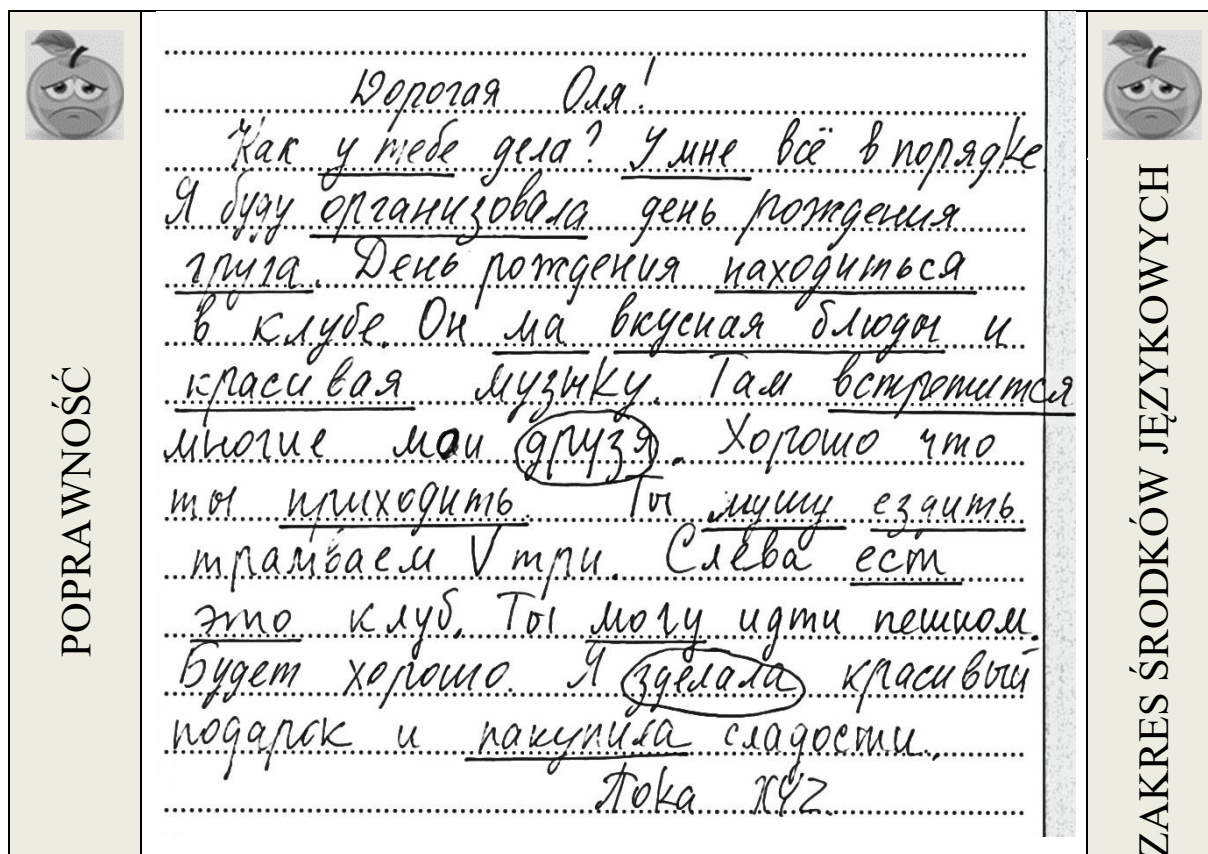 POPRAWNOŚĆ
Дорогая Оля!
Как у тебе дела? У мне всё в порядке
Я буду организовала день рождения
груга. День рождения находиться
в клубе. Он ма вкусная блюды и
красивая музыку. Там встретится
многие мои друзя. Хорошо что
ты приходить. Ты мушу ездить
трамваем V три. Слева ест
это клуб. Ты могу идти пешком.
Будет хорошо. Я зделала красивый
подарок и пакупила сладости.
Пока XYZ.
ZAKRES ŚRODKÓW JĘZYKOWYCH